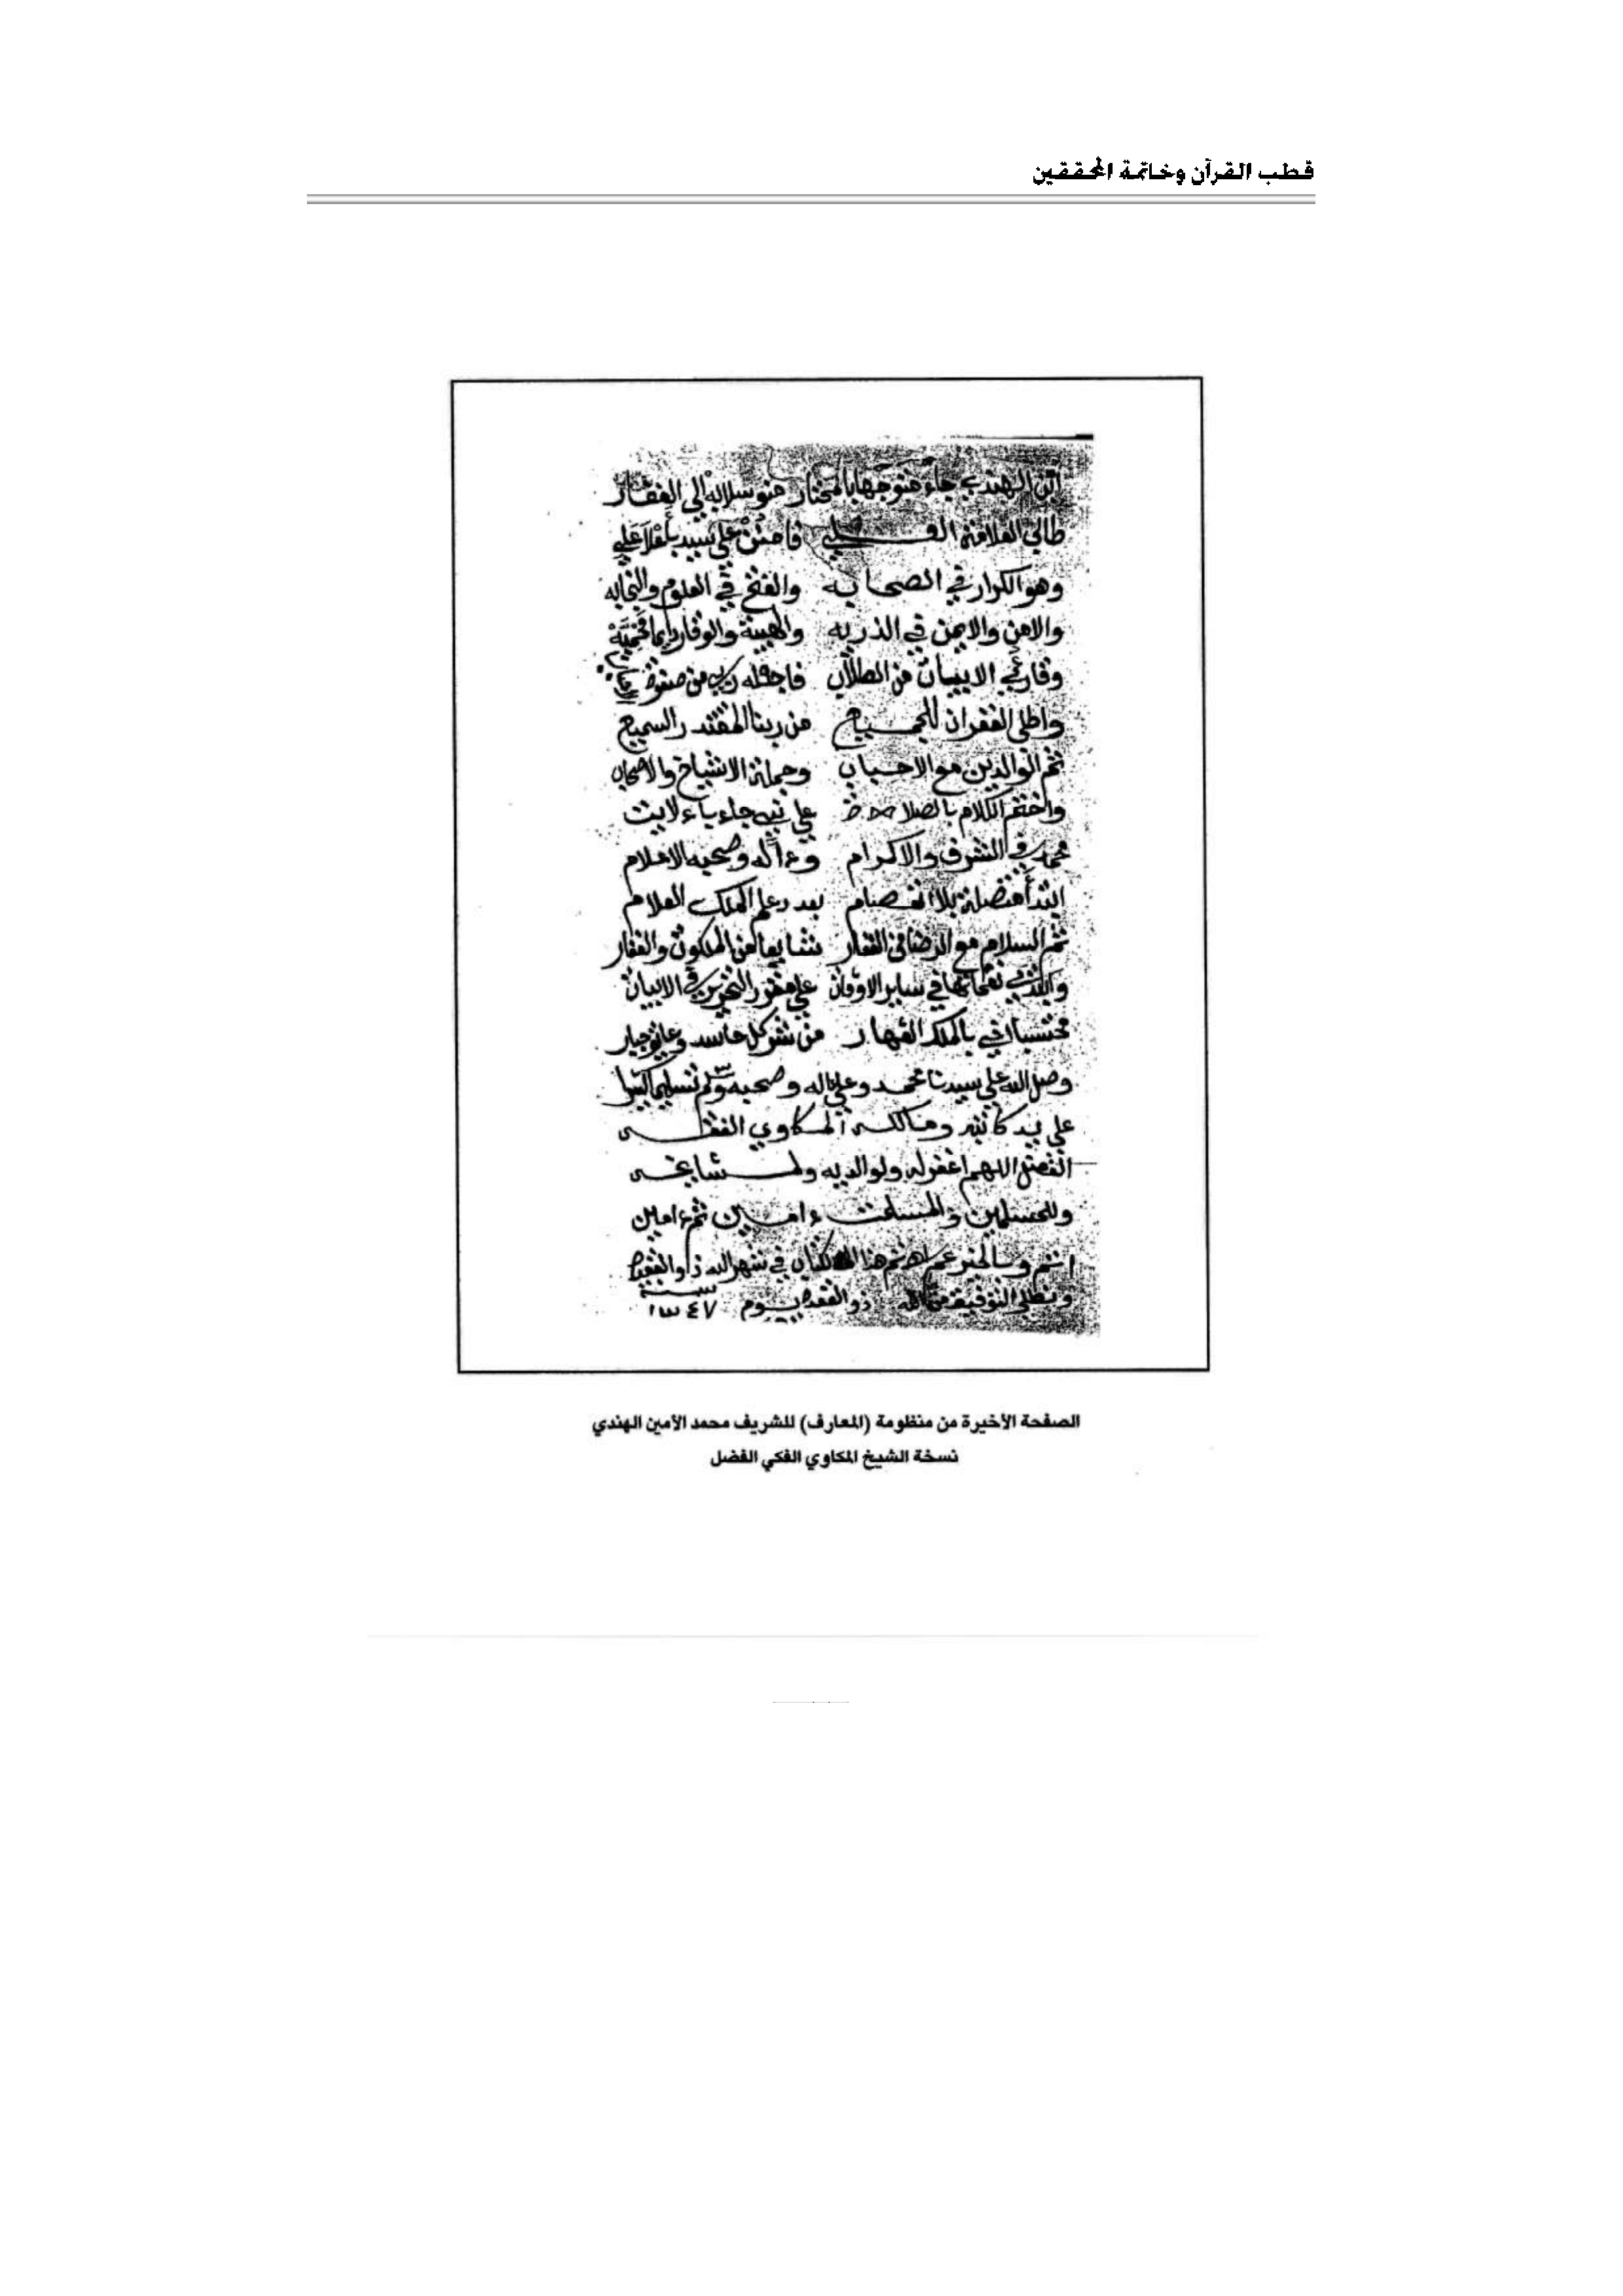 قطب القرآن وخاتمة المحققين
ابن الهندي جاء متوجها بالمختار متوسلا به إلى الغفار
طالب العلامة فامنن علي سيد
وهو الكرار في الصحابه والفتح في العلوم والنجابه
والامن والايمن في الذريه والهيبة والوقار
وقارئي الابيات من الطلاب فاجعله ربي من
واطلب الغفران للجميع من ربنا المقتدر السميع
ثم الوالدين مع الاحباب وجملة الاشياخ والاصحاب
واختم الكلام بالصلاة على نبي جاء بالايات
محمد الشرف والاكرام وءاله وصحبه الاعلام
متصلة بلا انفصام بعد وعلم الملك العلام
ثم السلام مع الرضا
نفحاتها في ساير الاوقات على الابيات
محتسبا بالملك القهار من شر كل حاسد وعات جبار
وصل الله على سيدنا محمد وعلى ءاله وصحبه وسلم تسليما كثيرا
على يد كاتبه ومالكه المكاوي الفقى
الفضل اللهم اغفر له ولوالديه ولمشايخه
وللمسلمين والمسلمت ءامين ثم ءامين
انتم وبالخير عم هذا الكتاب في شهر الله ذو القعده
ونطلب التوفيق من الله ذو القعده يوم سنة ١٣٤٧
الصفحة الأخيرة من منظومة (المعارف) للشريف محمد الأمين الهندي
نسخة الشيخ المكاوي الفكي الفضل